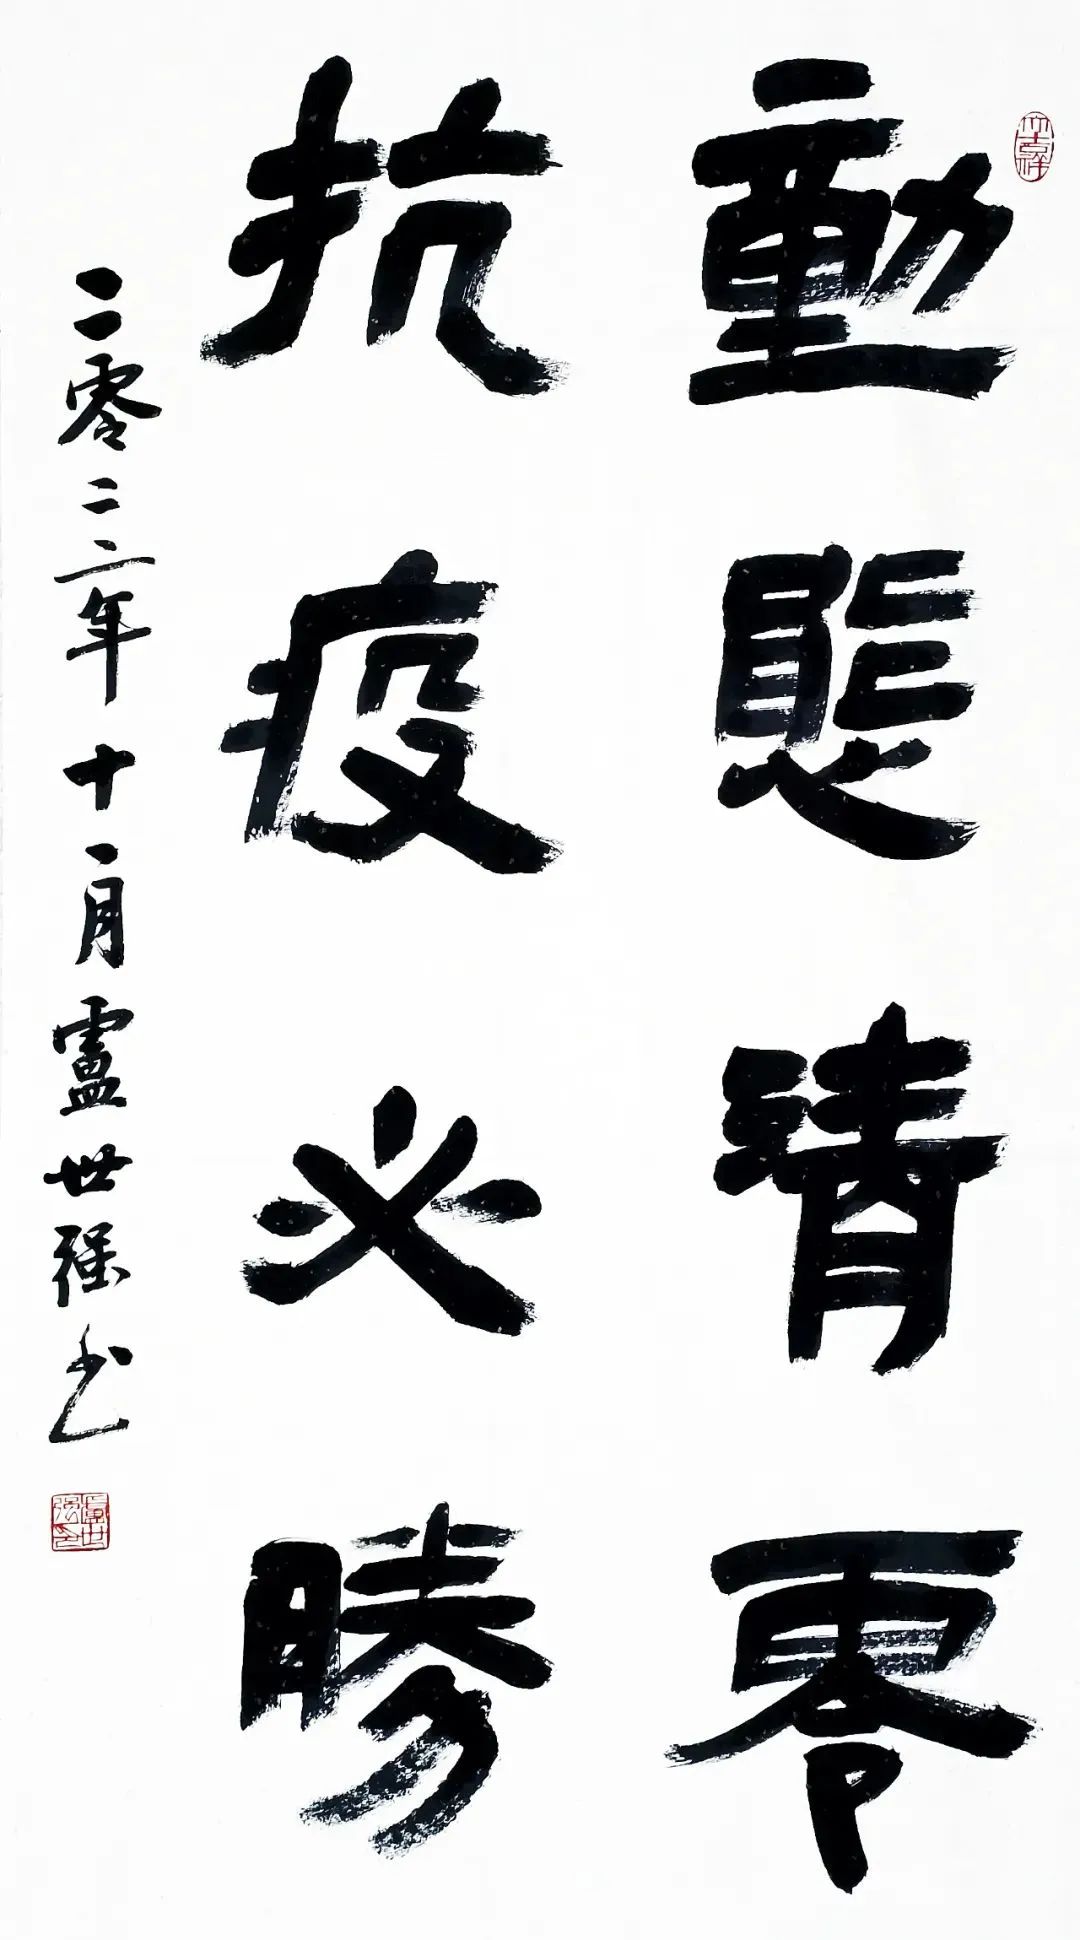 動態清零
抗疫必勝
二零二二年十一月盧世强书